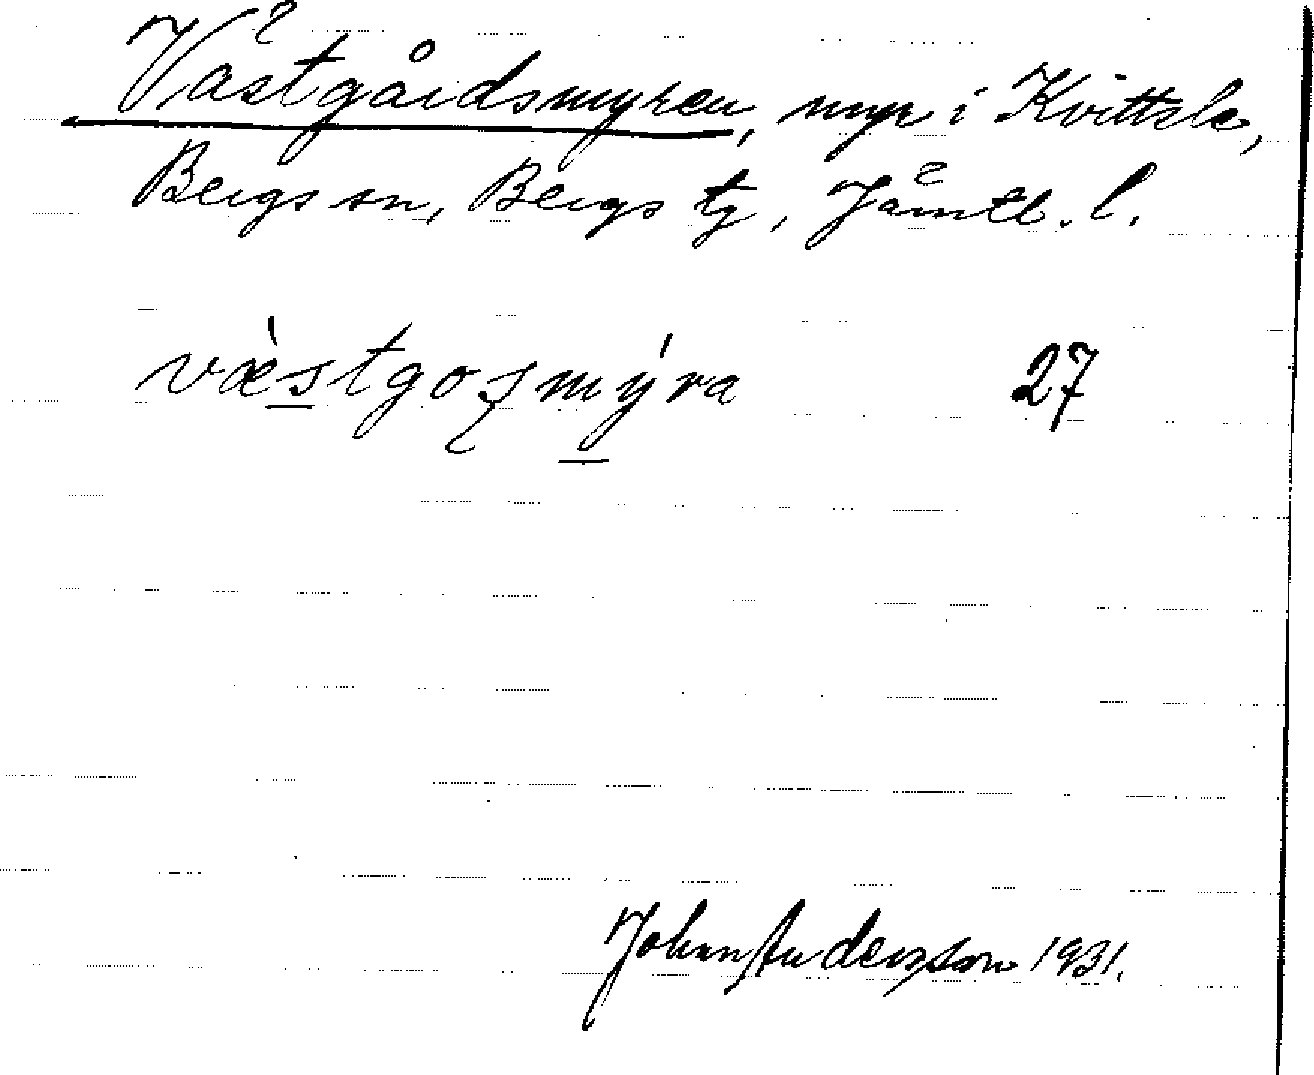 Västgårdsmyren, myr i Kvittsle,
Bergs sn, Bergs tg, Jämtl. l.
væ̀stgoʂmýra 27
Johan Andersson 1931.